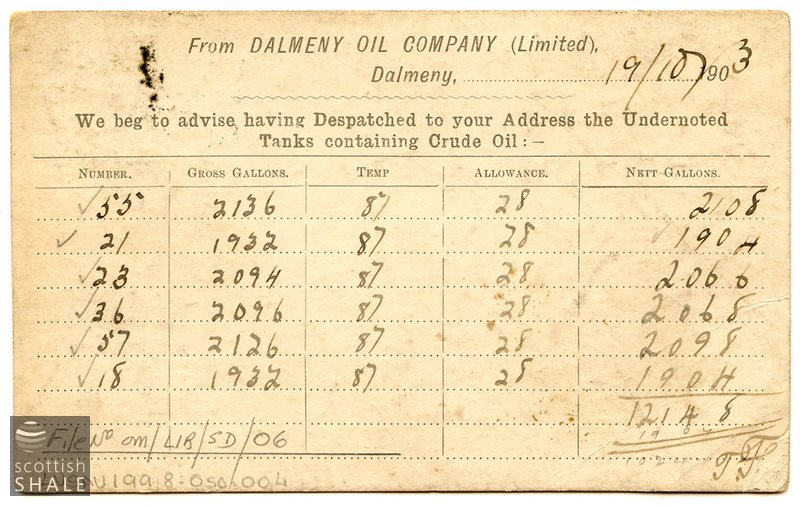 From DALMENY OIL COMPANY (Limited),
Dalmeny, 19/10/1903
We beg to advise having Despatched to your Address the Undernoted
Tanks containing Crude Oil :—
NUMBER. GROSS GALLONS. TEMP ALLOWANCE. NETT GALLONS.
✓55 2136 87 28 2108
✓21 1932 87 28 1904
✓23 2094 87 28 2066
✓36 2096 87 28 2068
✓57 2126 87 28 2098
✓18 1932 87 28 1904
12148
File No om/LIB/SD/06
scottish
SHALE
1998:050.004